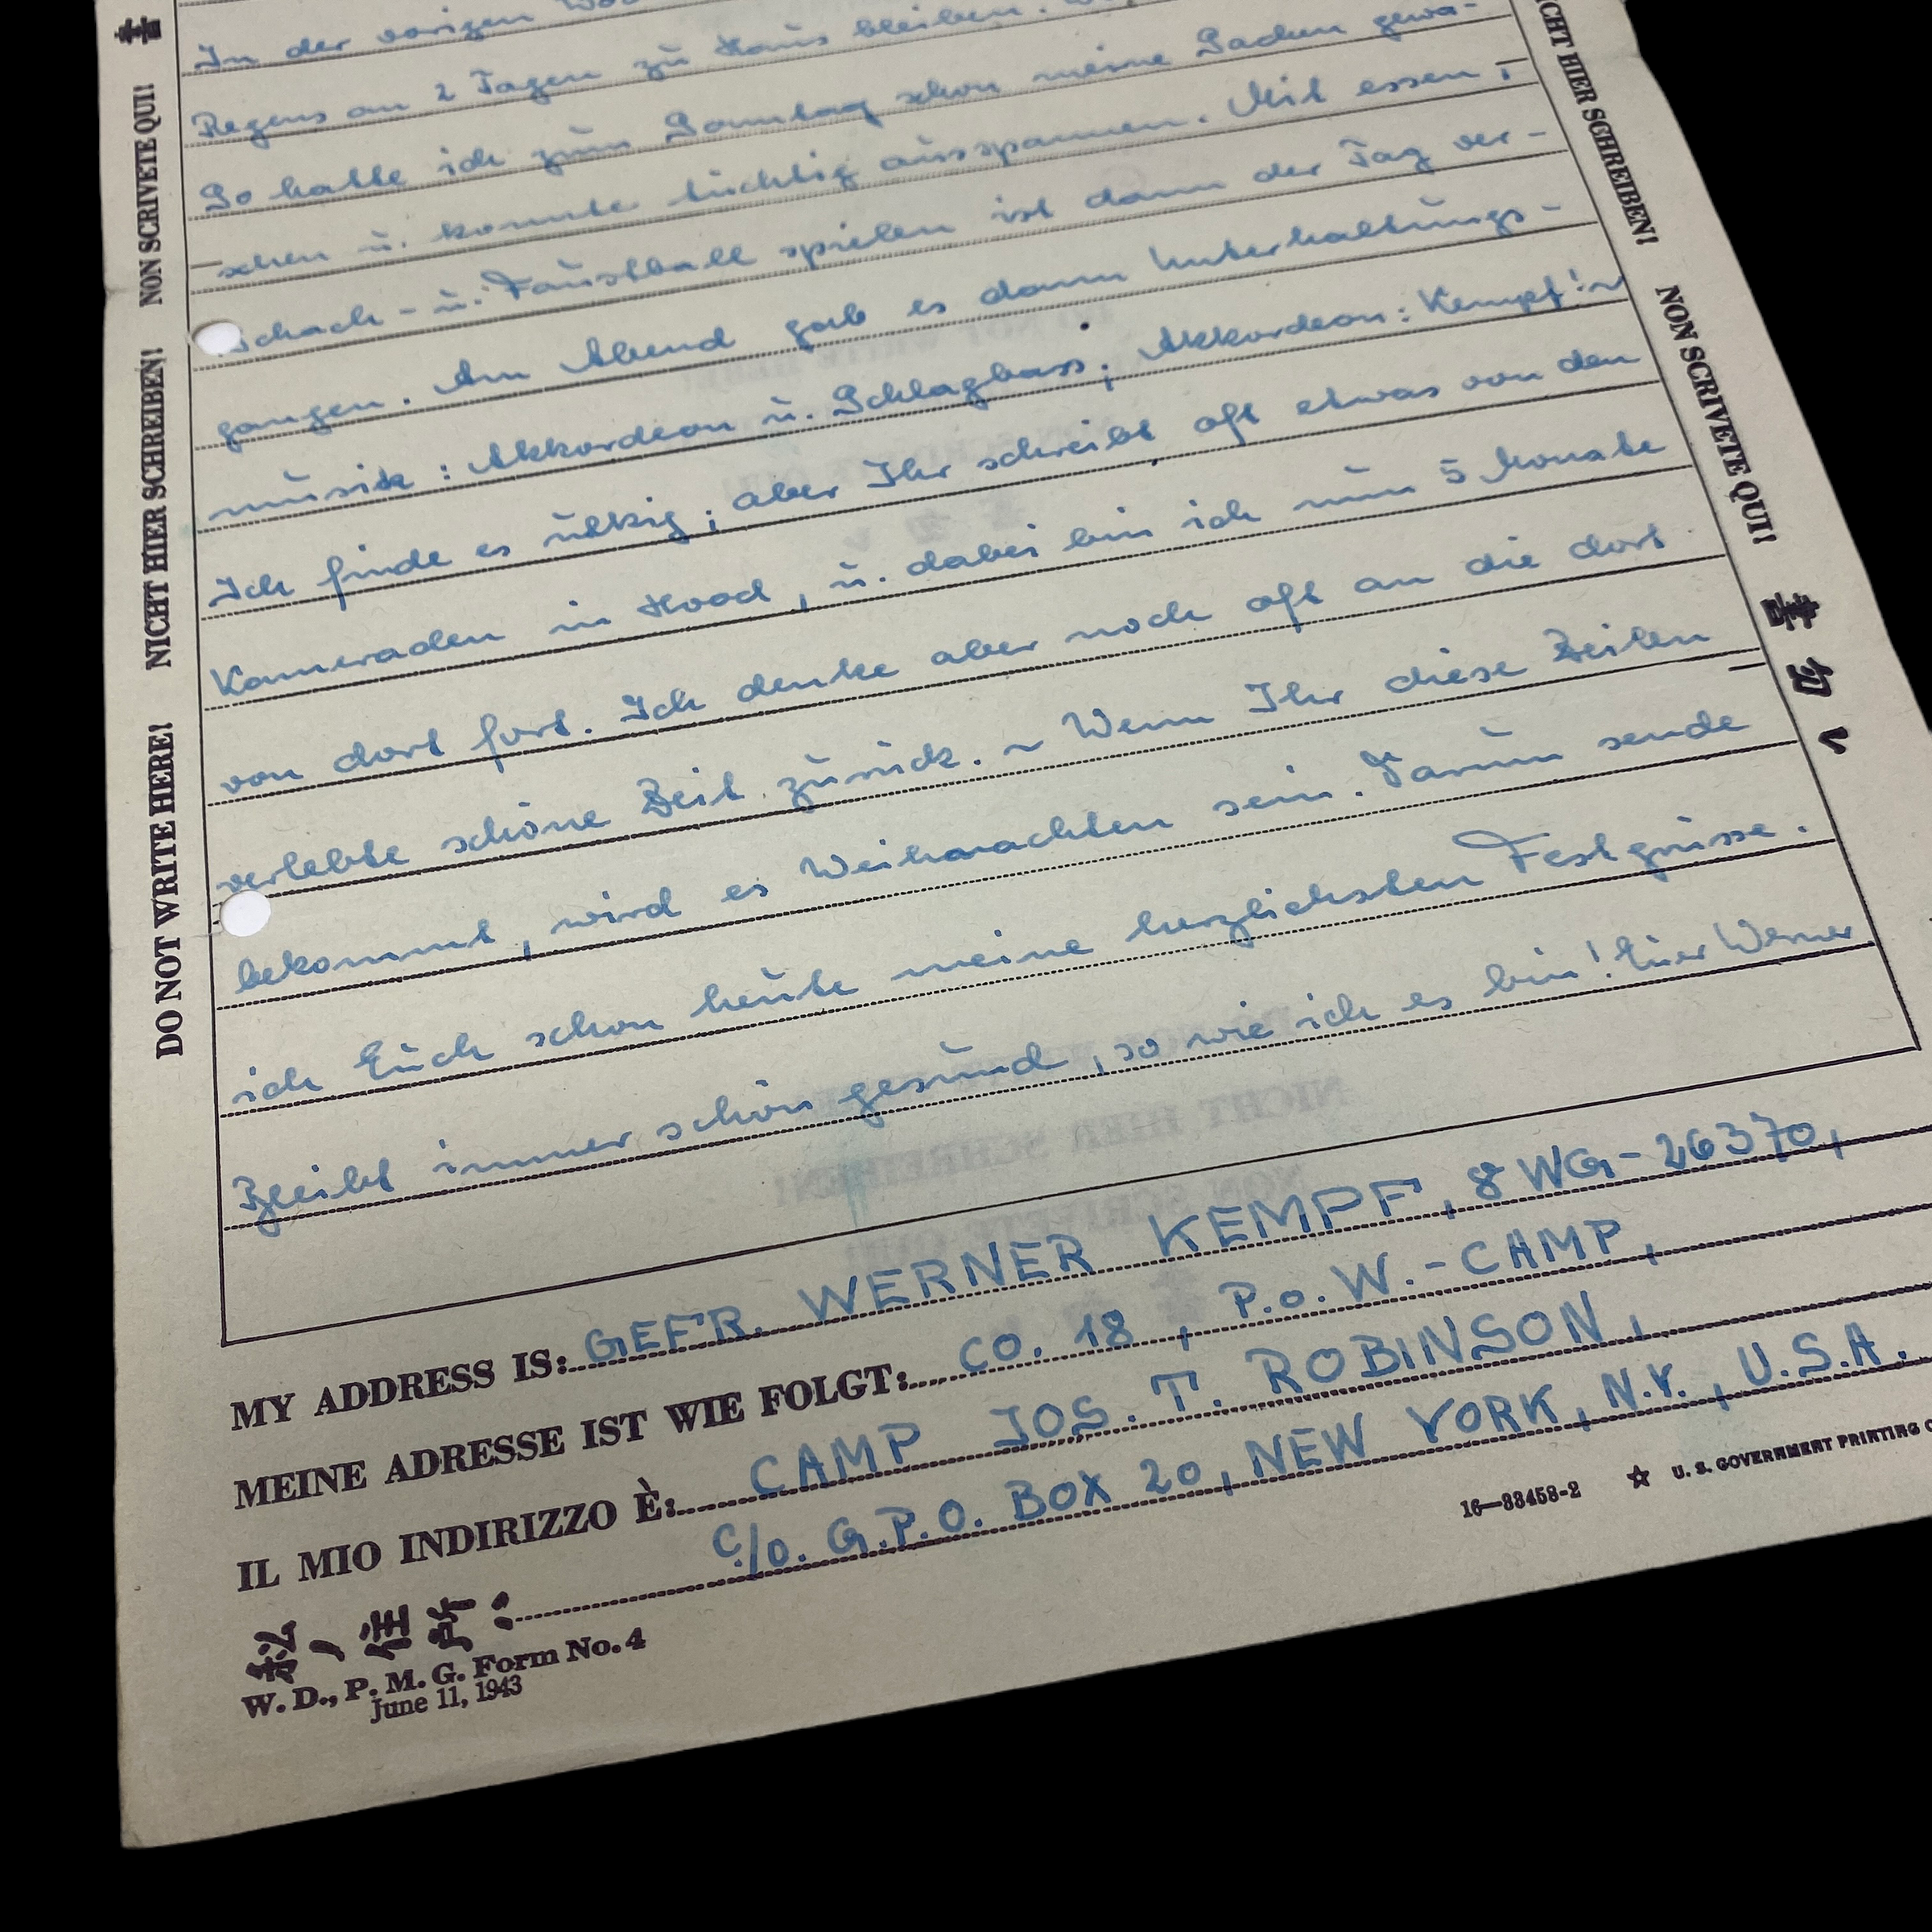 In der vorigen
Regens an 2 Tagen zu Haus bleiben.
So hatte ich zum Sonntag schon meine Sachen gewa-
schen u. konnte tüchtig ausspannen. Mit essen,
Schach- u. Faustball spielen ist dann der Tag ver-
gangen. Am Abend gab es dann Unterhaltungs-
musik: Akkordeon u. Schlagbass; Akkordeon: Kempf!~
Ich finde es ulkig; aber Ihr schreibt oft etwas von den
Kameraden in Hood, u. dabei bin ich nun 5 Monate
von dort fort. Ich denke aber noch oft an die dort
verlebte schöne Zeit zurück. ~ Wenn Ihr diese Zeilen
bekommt, wird es Weihnachten sein. Darum sende
ich Euch schon heute meine herzlichsten Festgrüsse.
Bleibt immer schön gesund, so wie ich es bin! Euer Werner
MY ADDRESS IS: GEFR. WERNER KEMPF, 8 WG-26370,
MEINE ADRESSE IST WIE FOLGT: CO. 18, P.o.W.-CAMP,
IL MIO INDIRIZZO È: CAMP JOS. T. ROBINSON,
C/O. G.P.O. BOX 20, NEW YORK, N.Y., U.S.A.
W. D., P. M. G. Form No. 4
June 11, 1943
16—33458-2 ☆ U. S. GOVERNMENT PRINTING
DO NOT WRITE HERE! NICHT HIER SCHREIBEN! NON SCRIVETE QUI!
NICHT HIER SCHREIBEN! NON SCRIVETE QUI!